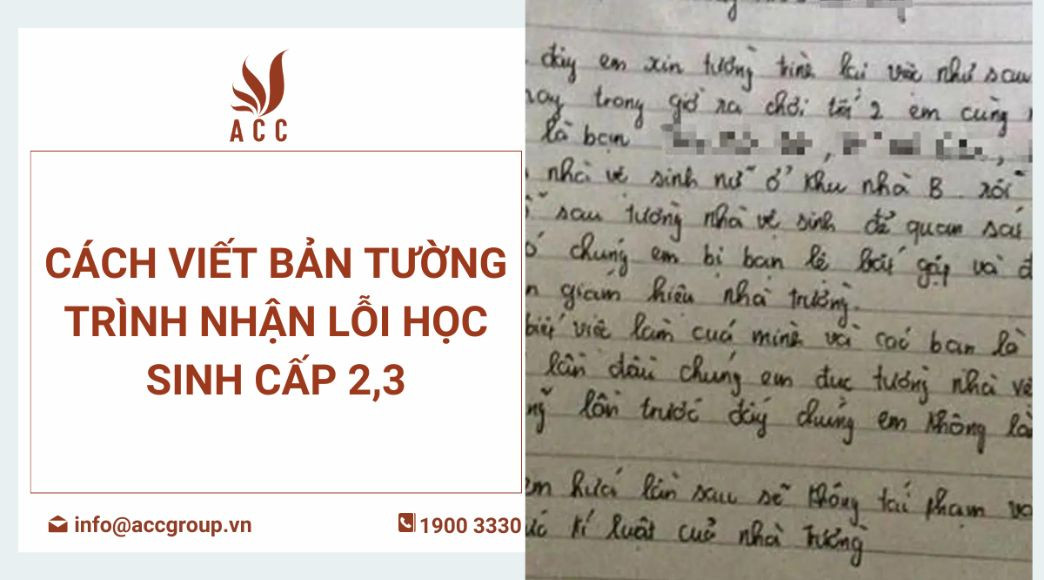 ACC
CÁCH VIẾT BẢN TƯỜNG
TRÌNH NHẬN LỖI HỌC
SINH CẤP 2,3
info@accgroup.vn
1900 3330
đây em xin tường trình lại việc như sau
nay trong giờ ra chơi tiết 2 em cùng
là bạn
nhà vệ sinh nữ ở khu nhà B rồi
sau tường nhà vệ sinh để quan sát
chúng em bị bạn lê bắt gặp và
giám hiệu nhà trường.
biết việc làm của mình và các bạn là
lần đầu chúng em đục tường nhà vệ
lần trước đây chúng em không
em hứa lần sau sẽ không tái phạm
kỉ luật của nhà trường